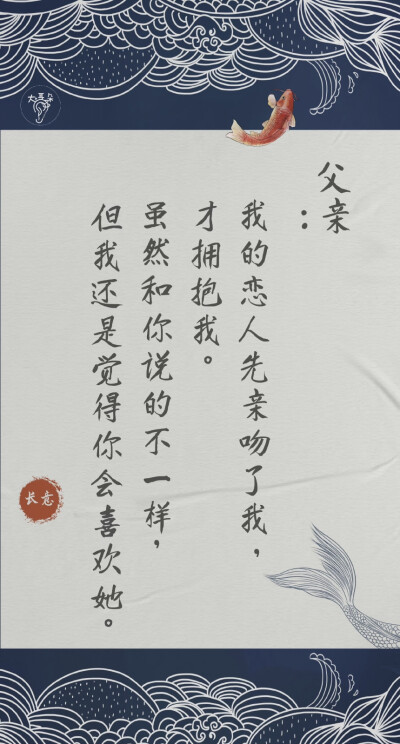 父亲：
我的恋人先亲吻了我，
才拥抱我。
虽然和你说的不一样，
但我还是觉得你会喜欢她。
长意